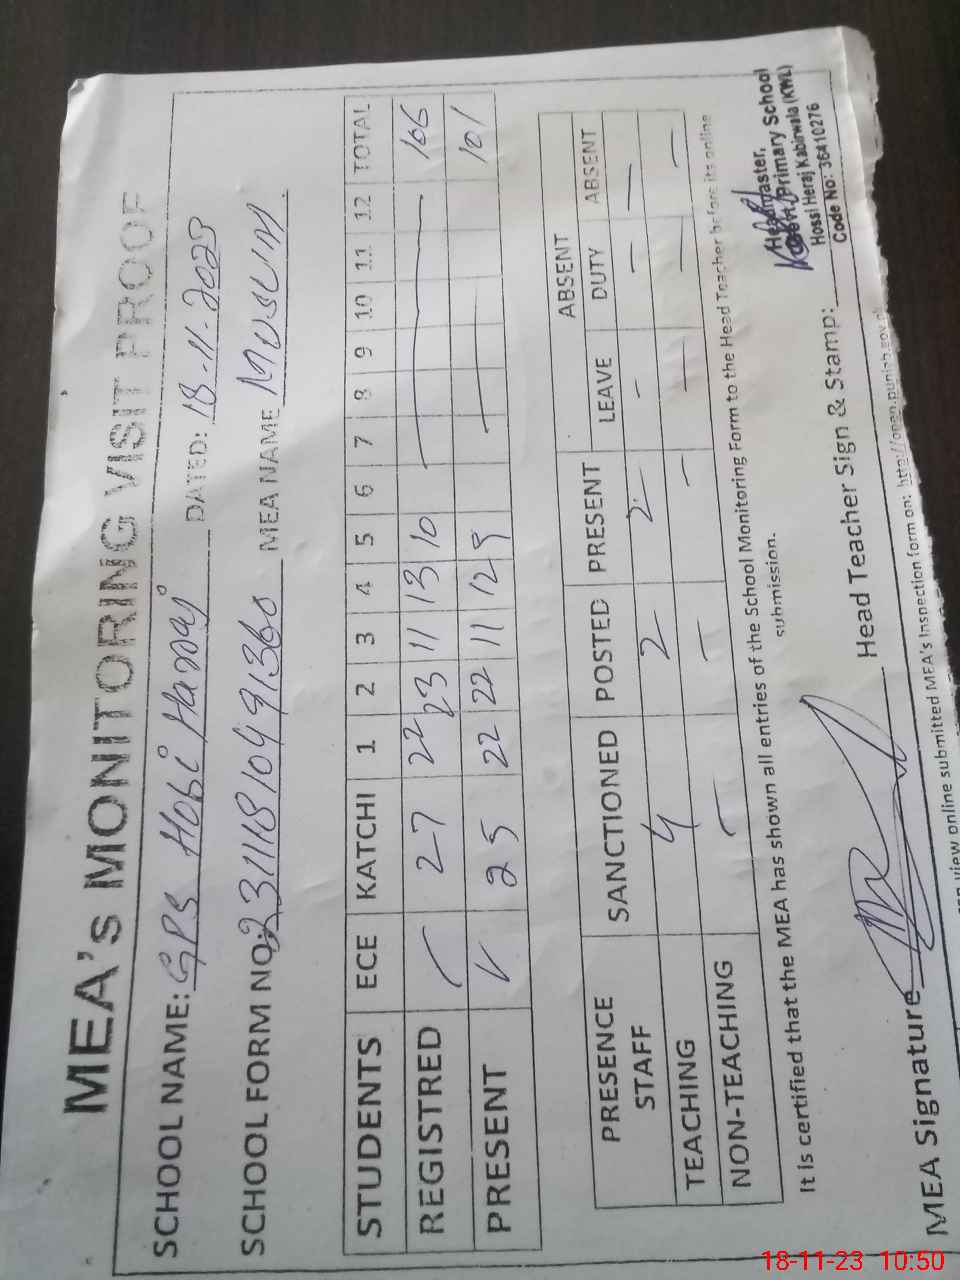 MEA's MONITORING VISIT PROOF
SCHOOL NAME: GPS Hobi Harraj DATED: 18-11-2023
SCHOOL FORM NO: 23111810491360 MEA NAME
STUDENTS ECE KATCHI 1 2 3 4 5 6 7 8 9 10 11 12 TOTAL
REGISTRED — 27 22 23 11 13 10 — 106
PRESENT — 25 22 22 11 12 9 — 101
PRESENCE STAFF SANCTIONED POSTED PRESENT LEAVE ABSENT DUTY ABSENT
TEACHING 4 2 2 — — —
NON-TEACHING — — — — — —
It is certified that the MEA has shown all entries of the School Monitoring Form to the Head Teacher before its online
submission.
Headmaster,
Govt. Primary School
Hossi Heraj Kabirwala (KWL)
Code No: 36410276
MEA Signature Head Teacher Sign & Stamp:
view online submitted MEA's Inspection form on: http://open.punjab.gov.pk
18-11-23 10:50